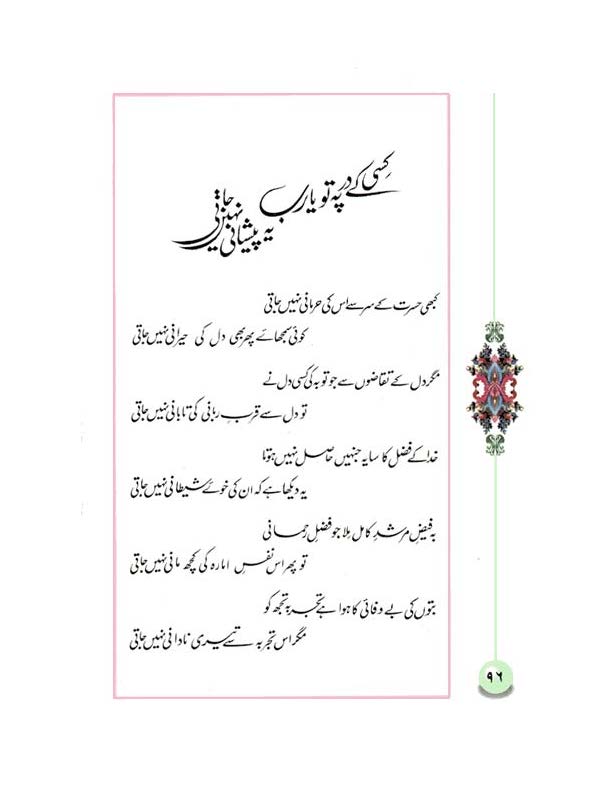 کسی کے در پہ تو یارب
یہ پیشانی نہیں جاتی
کبھی حسرت کے سر سے اس کی حرمانی نہیں جاتی
کوئی سمجھائے پھر بھی دل کی حیرانی نہیں جاتی
مگر دل کے تقاضوں سے جو توبہ کی کسی دل نے
تو دل سے قربِ ربانی کی تابانی نہیں جاتی
خدا کے فضل کا سایہ جنہیں حاصل نہیں ہوتا
یہ دیکھا ہے کہ ان کی خوئے شیطانی نہیں جاتی
بہ فیضِ مرشدِ کامل ملا جو فضلِ رحمانی
تو پھر اس نفسِ امارہ کی کچھ مانی نہیں جاتی
بتوں کی بے وفائی کا ہوا ہے تجربہ تجھ کو
مگر اس تجربہ سے تیری نادانی نہیں جاتی
۹۶